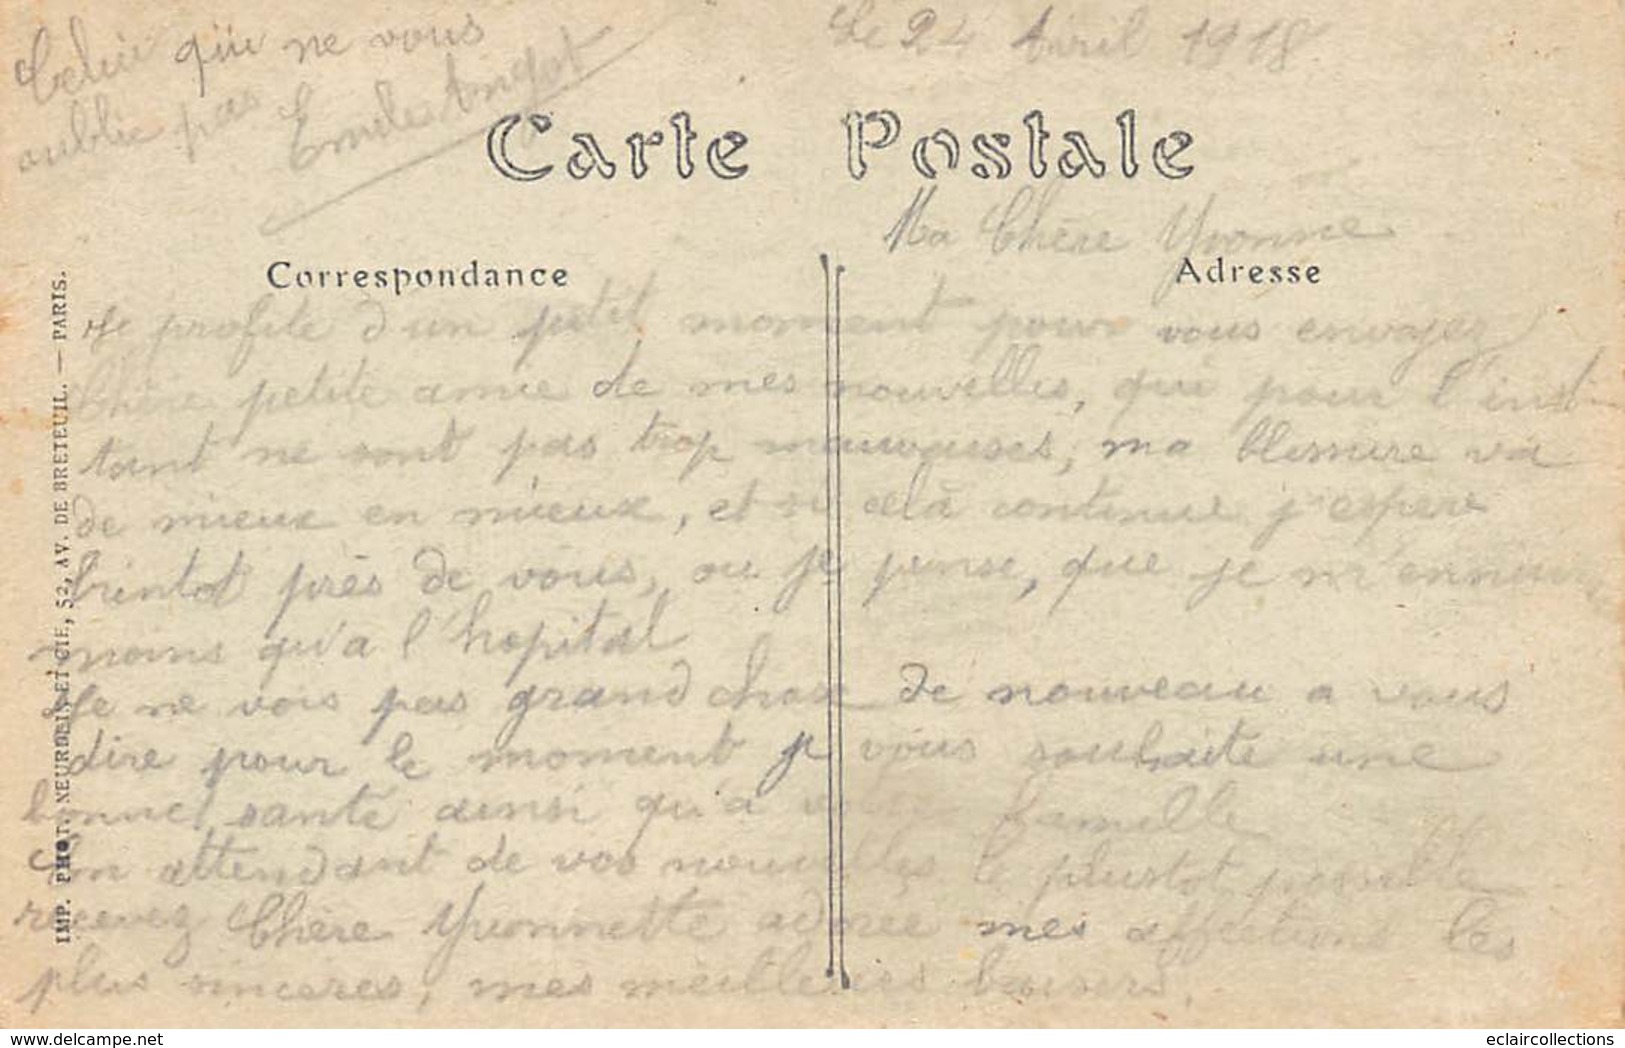 Le 24 Avril 1918
Carte Postale
Ma Chère Yvonne
Correspondance
Adresse
Je profite d'un petit moment pour vous envoyez
Chère petite amie de mes nouvelles, qui pour l'inst-
tant ne sont pas trop mauvaises, ma blessure va
de mieux en mieux, et si celà continue j'espere
bientot près de vous, ou je pense, que je m'ennuie
moins qu'a l'hopital
Je ne vois pas grand chose de nouveau a vous
dire pour le moment je vous souhaite une
bonne santé ainsi qu'a votre famille
En attendant de vos nouvelles le plustot possible
recevez Chère Yvonnette adorée mes affections les
plus sinceres, mes meilleurs baisers,
Celui qui ne vous
oublie pas
Emile Angot
IMP. PHOT. NEURDEIN ET CIE, 52, AV. DE BRETEUIL. — PARIS.
www.delcampe.net
eclaircollections